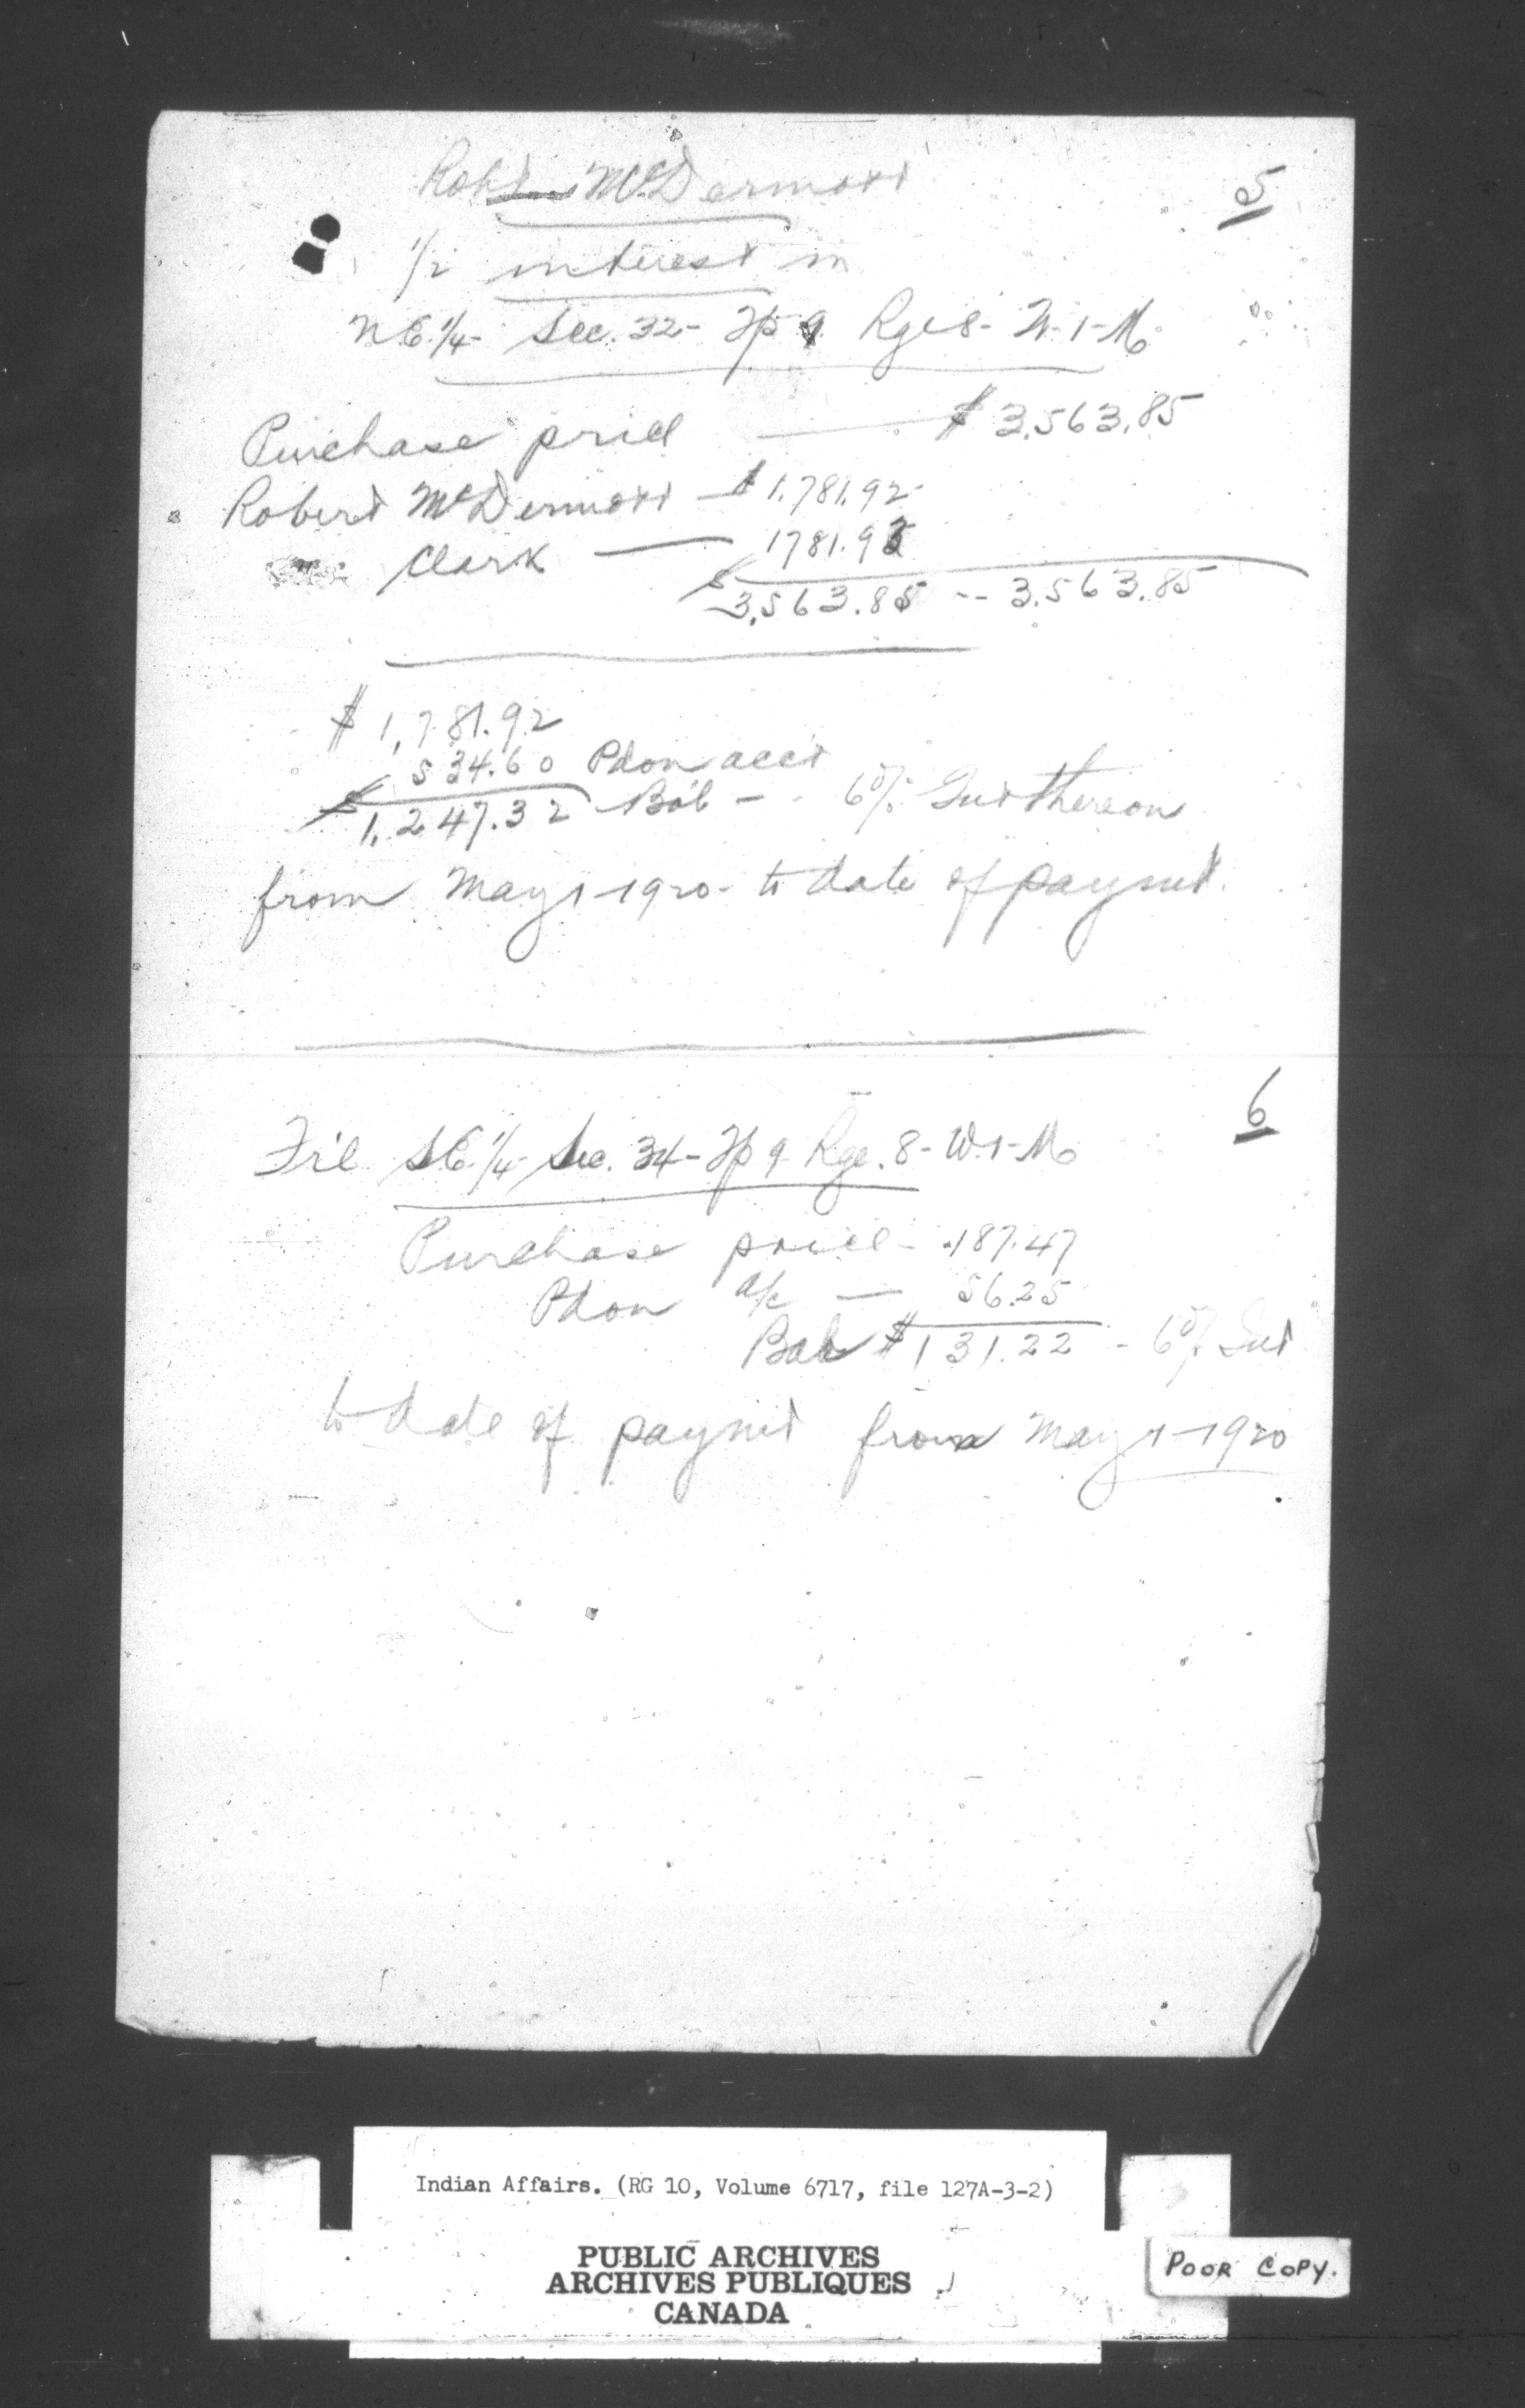 Robt McDermott
5
1/2 interest in
N.E. 1/4 - Sec. 32 - Tp 9 Rge 8 - W-1-M
Purchase price — $ 3,563.85
Robert McDermott — $ 1,781.92
Clark — 1781.93
$ 3,563.85 -- 3,563.85
$ 1,781.92
534.60 Pd on acct
$ 1,247.32 Bal - 6% Int thereon
from May 1 - 1920 - to date of paymt.
6
S.E. 1/4 - Sec. 34 - Tp 9 Rge. 8 - W-1-M
Purchase price - 187.47
Pd on a/c — 56.25
Bal $ 131.22 - 6% Int
to date of paymt from May 1 - 1920
Indian Affairs. (RG 10, Volume 6717, file 127A-3-2)
PUBLIC ARCHIVES
ARCHIVES PUBLIQUES
CANADA
POOR COPY.